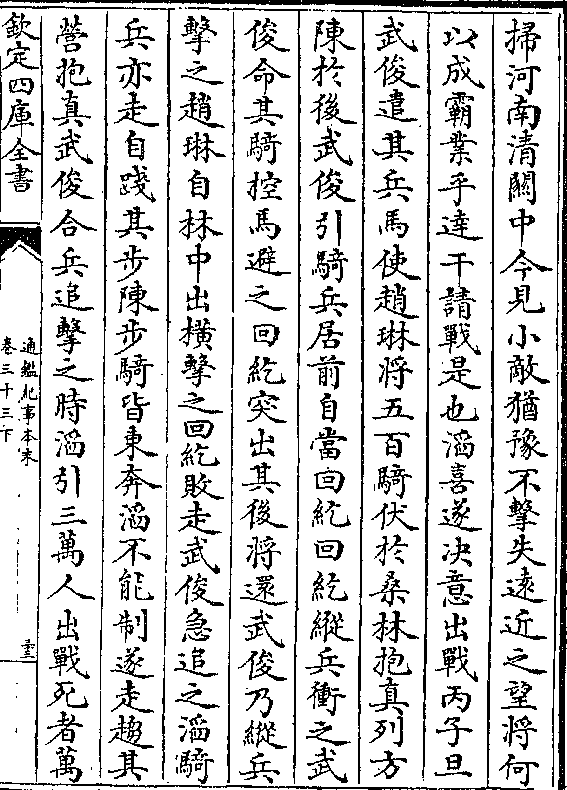 掃河南清關中今見小敵猶豫不擊失遠近之望將何
以成霸業乎達干請戰是也滔喜遂決意出戰丙子旦
武俊遣其兵馬使趙琳將五百騎伏於桑林抱真列方
陳於後武俊引騎兵居前自當回紇回紇縱兵衝之武
俊命其騎控馬避之回紇突出其後將還武俊乃縱兵
擊之趙琳自林中出橫擊之回紇敗走武俊急追之滔騎
兵亦走自踐其步陳步騎皆東奔滔不能制遂走趨其
營抱真武俊合兵追擊之時滔引三萬人出戰死者萬
欽定四庫全書
通鑑紀事本末
卷三十三下